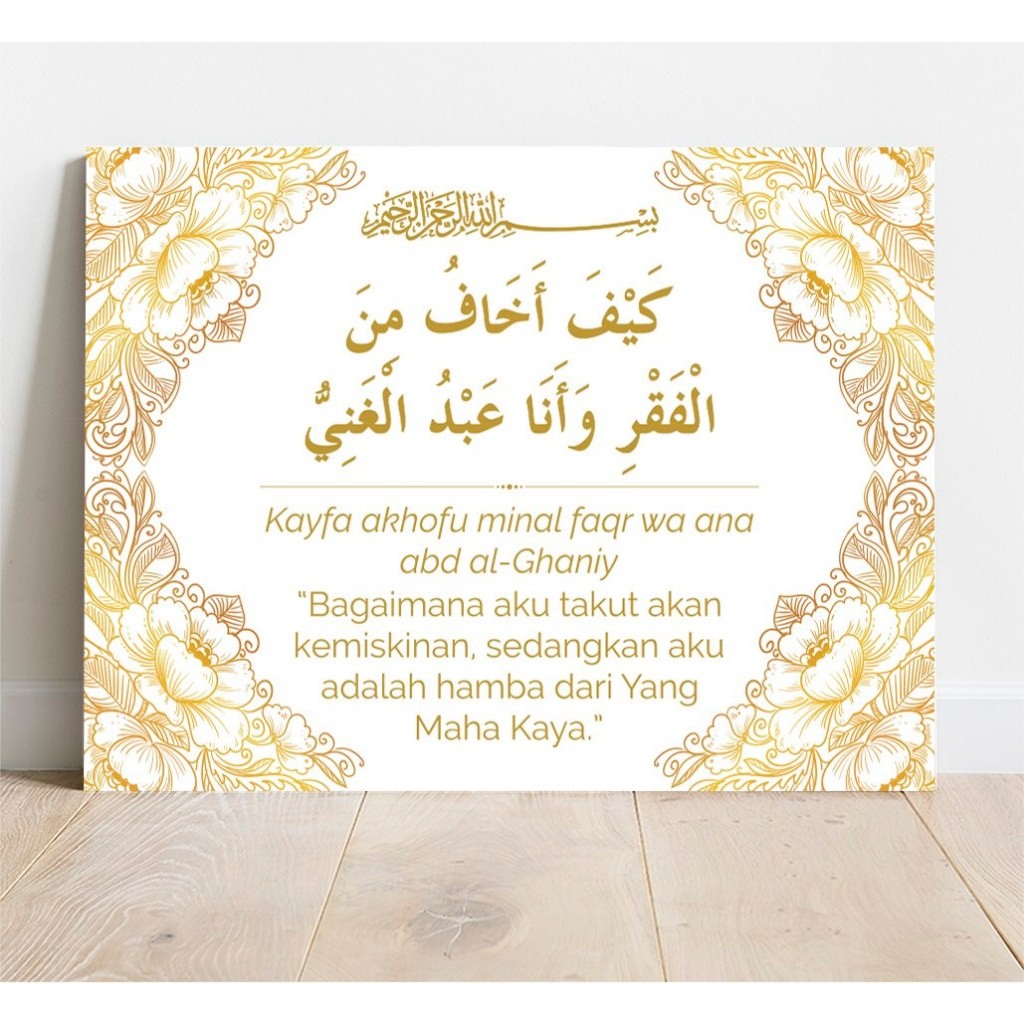 بسم الله الرحمن الرحيم
كَيْفَ أَخَافُ مِنَ
الْفَقْرِ وَأَنَا عَبْدُ الْغَنِيُّ
Kayfa akhofu minal faqr wa ana
abd al-Ghaniy
“Bagaimana aku takut akan
kemiskinan, sedangkan aku
adalah hamba dari Yang
Maha Kaya.”